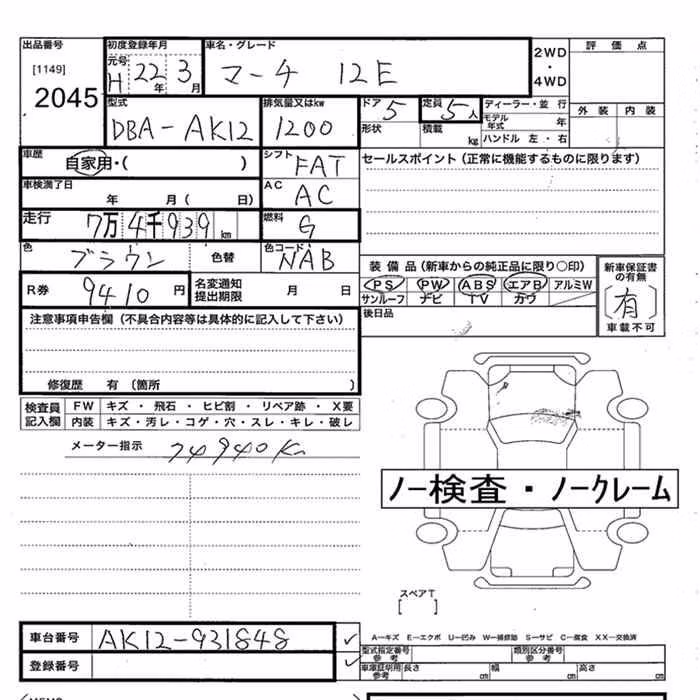 出品番号 初度登録年月 車名・グレード 2WD・4WD 評価点
[1149] 元号 H 22年 3月 マーチ 12E
2045 型式 排気量又はkw ドア 5 定員 5人 ディーラー・並行 外装 内装
DBA-AK12 1200 形状 積載 kg モデル年式 年
ハンドル 左・右
車歴 自家用・( ) シフト FAT セールスポイント(正常に機能するものに限ります)
車検満了日 年 月( 日) AC AC
走行 7万4千939km 燃料 G
色 ブラウン 色替 色コード NAB
装備品(新車からの純正品に限り○印) 新車保証書の有無
R券 9410円 名変通知提出期限 月 日 PS PW ABS エアB アルミW [有]
サンルーフ ナビ TV カワ 車載不可
注意事項申告欄(不具合内容等は具体的に記入して下さい) 後日品
修復歴 有 〔箇所 〕
検査員記入欄 FW キズ・飛石・ヒビ割・リペア跡・X要
内装 キズ・汚レ・コゲ・穴・スレ・キレ・破レ
メーター指示 74940Km
ノー検査・ノークレーム
スペアT
[ ]
車台番号 AK12-931848 A－キズ E－エクボ U－凹み W－補修跡 S－サビ C－腐食 XX－交換済
型式指定番号 参考 類別区分番号 参考
登録番号 車庫証明用 参考 長さ cm 幅 cm 高さ cm